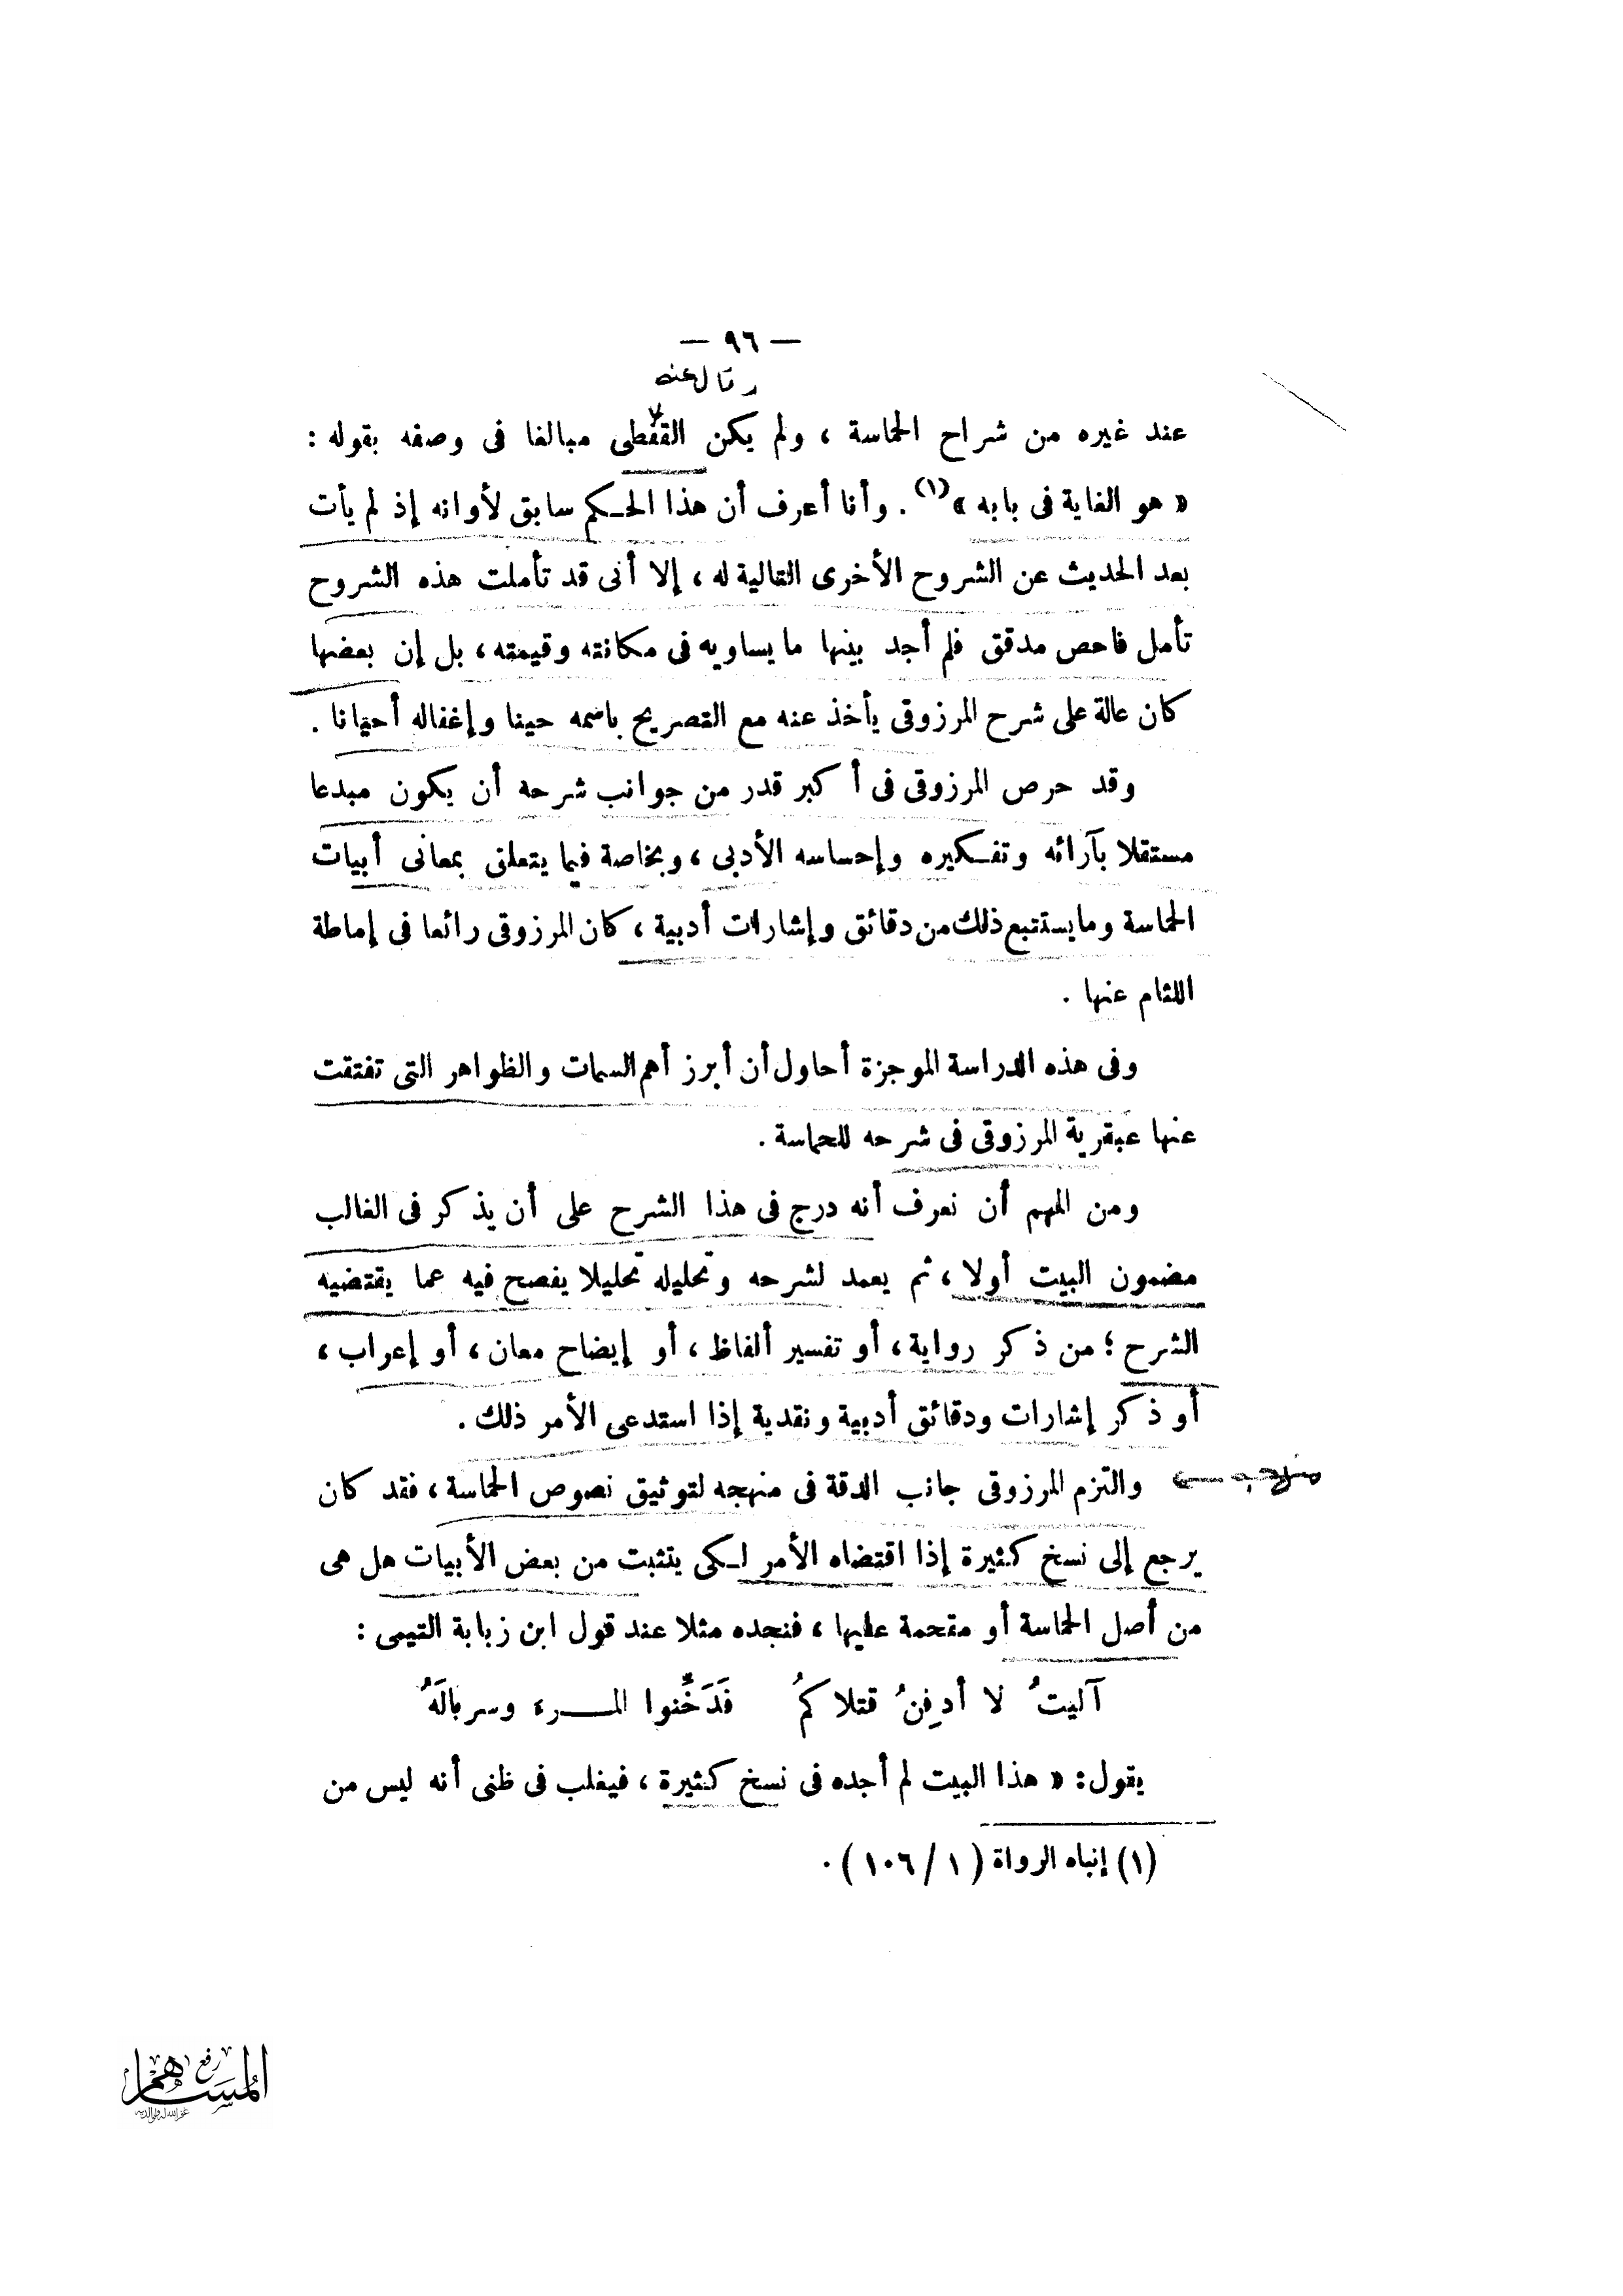 — ٩٦ —
وقال عنه
عند غيره من شراح الحماسة ، ولم يكن القفطى مبالغا فى وصفه بقوله :
« هو الغاية فى بابه »(١) . وأنا أعرف أن هذا الحـكم سابق لأوانه إذ لم يأت
بعد الحديث عن الشروح الأخرى التالية له ، إلا أنى قد تأملت هذه الشروح
تأمل فاحص مدقق فلم أجد بينها ما يساويه فى مكانته وقيمته ، بل إن بعضها
كان عالة على شرح المرزوقى يأخذ عنه مع التصريح باسمه حينا وإغفاله أحيانا .
وقد حرص المرزوقى فى أكبر قدر من جوانب شرحه أن يكون مبدعا
مستقلا بآرائه وتفـكيره وإحساسه الأدبى ، وبخاصة فيما يتعلق بمعانى أبيات
الحماسة وما يستتبع ذلك من دقائق وإشارات أدبية ، كان المرزوقى رائعا فى إماطة
اللثام عنها .
وفى هذه الدراسة الموجزة أحاول أن أبرز أهم السمات والظواهر التى تفتقت
عنها عبقرية المرزوقى فى شرحه للحماسة .
ومن المهم أن نعرف أنه درج فى هذا الشرح على أن يذكر فى الغالب
مضمون البيت أولا ، ثم يعمد لشرحه وتحليله تحليلا يفصح فيه عما يقتضيه
الشرح ؛ من ذكر رواية ، أو تفسير ألفاظ ، أو إيضاح معان ، أو إعراب ،
أو ذكر إشارات ودقائق أدبية ونقدية إذا استدعى الأمر ذلك .
والتزم المرزوقى جانب الدقة فى منهجه لتوثيق نصوص الحماسة ، فقد كان
يرجع إلى نسخ كثيرة إذا اقتضاه الأمر لـكى يتثبت من بعض الأبيات هل هى
من أصل الحماسة أو مقحمة عليها ، فنجده مثلا عند قول ابن زيابة التيمى :
آليتُ لا أدفِنُ قتلاكمُ فَدَخِّنوا المـــرء وسربالَهُ
يقول : « هذا البيت لم أجده فى نسخ كثيرة ، فيغلب فى ظنى أنه ليس من
(١) إنباه الرواة ( ١ / ١٠٦ ) .
رفع
المساهم
غفر الله له ولوالديه